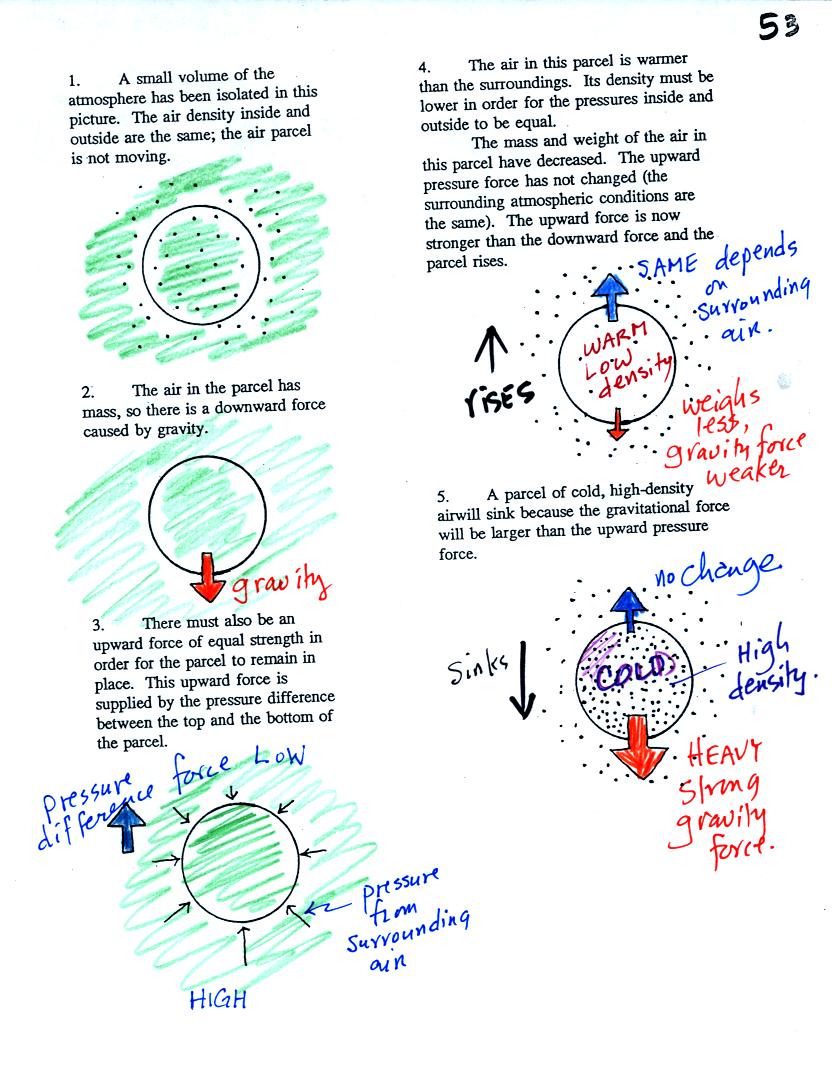 53
1. A small volume of the
atmosphere has been isolated in this
picture. The air density inside and
outside are the same; the air parcel
is not moving.
2. The air in the parcel has
mass, so there is a downward force
caused by gravity.
gravity
3. There must also be an
upward force of equal strength in
order for the parcel to remain in
place. This upward force is
supplied by the pressure difference
between the top and the bottom of
the parcel.
Pressure
difference force LOW
Pressure
from
surrounding
air
HIGH
4. The air in this parcel is warmer
than the surroundings. Its density must be
lower in order for the pressures inside and
outside to be equal.
The mass and weight of the air in
this parcel have decreased. The upward
pressure force has not changed (the
surrounding atmospheric conditions are
the same). The upward force is now
stronger than the downward force and the
parcel rises.
SAME depends
on
surrounding
air.
WARM
LOW
density
rises
weighs
less,
gravity force
weaker
5. A parcel of cold, high-density
airwill sink because the gravitational force
will be larger than the upward pressure
force.
no change
Sinks
COLD
High
density.
HEAVY
strong
gravity
force.